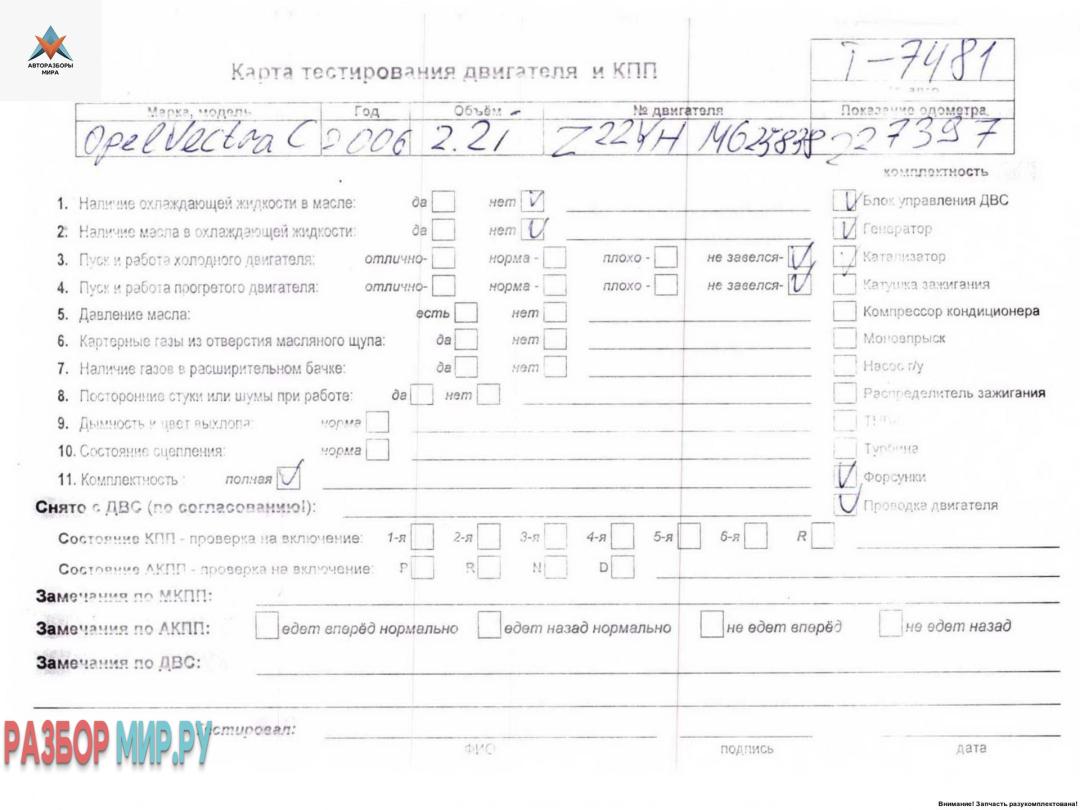 АВТОРАЗБОРЫ
МИРА
Т-7481
Карта тестирования двигателя и КПП
Марка, модель Год Объём № двигателя Показание одометра
Opel Vectra C 2006 2.2i Z22YH M625838 227397
комплектность
1. Наличие охлаждающей жидкости в масле: да нет Блок управления ДВС
2. Наличие масла в охлаждающей жидкости: да нет Генератор
3. Пуск и работа холодного двигателя: отлично- норма - плохо - не завелся- Катализатор
4. Пуск и работа прогретого двигателя: отлично- норма - плохо - не завелся- Катушка зажигания
5. Давление масла: есть нет Компрессор кондиционера
6. Картерные газы из отверстия масляного щупа: да нет Моновпрыск
7. Наличие газов в расширительном бачке: да нет Насос г/у
8. Посторонние стуки или шумы при работе: да нет Распределитель зажигания
9. Дымность и цвет выхлопа: норма
10. Состояние сцепления: норма Турбина
11. Комплектность : полная Форсунки
Снято с ДВС (по согласованию!): Проводка двигателя
Состояние КПП - проверка на включение: 1-я 2-я 3-я 4-я 5-я 6-я R
Состояние АКПП - проверка на включение: P R N D
Замечания по МКПП:
Замечания по АКПП: едет вперёд нормально едет назад нормально не едет вперёд не едет назад
Замечания по ДВС:
Тестировал:
ФИО подпись дата
РАЗБОР МИР.РУ
Внимание! Запчасть разукомплектована!